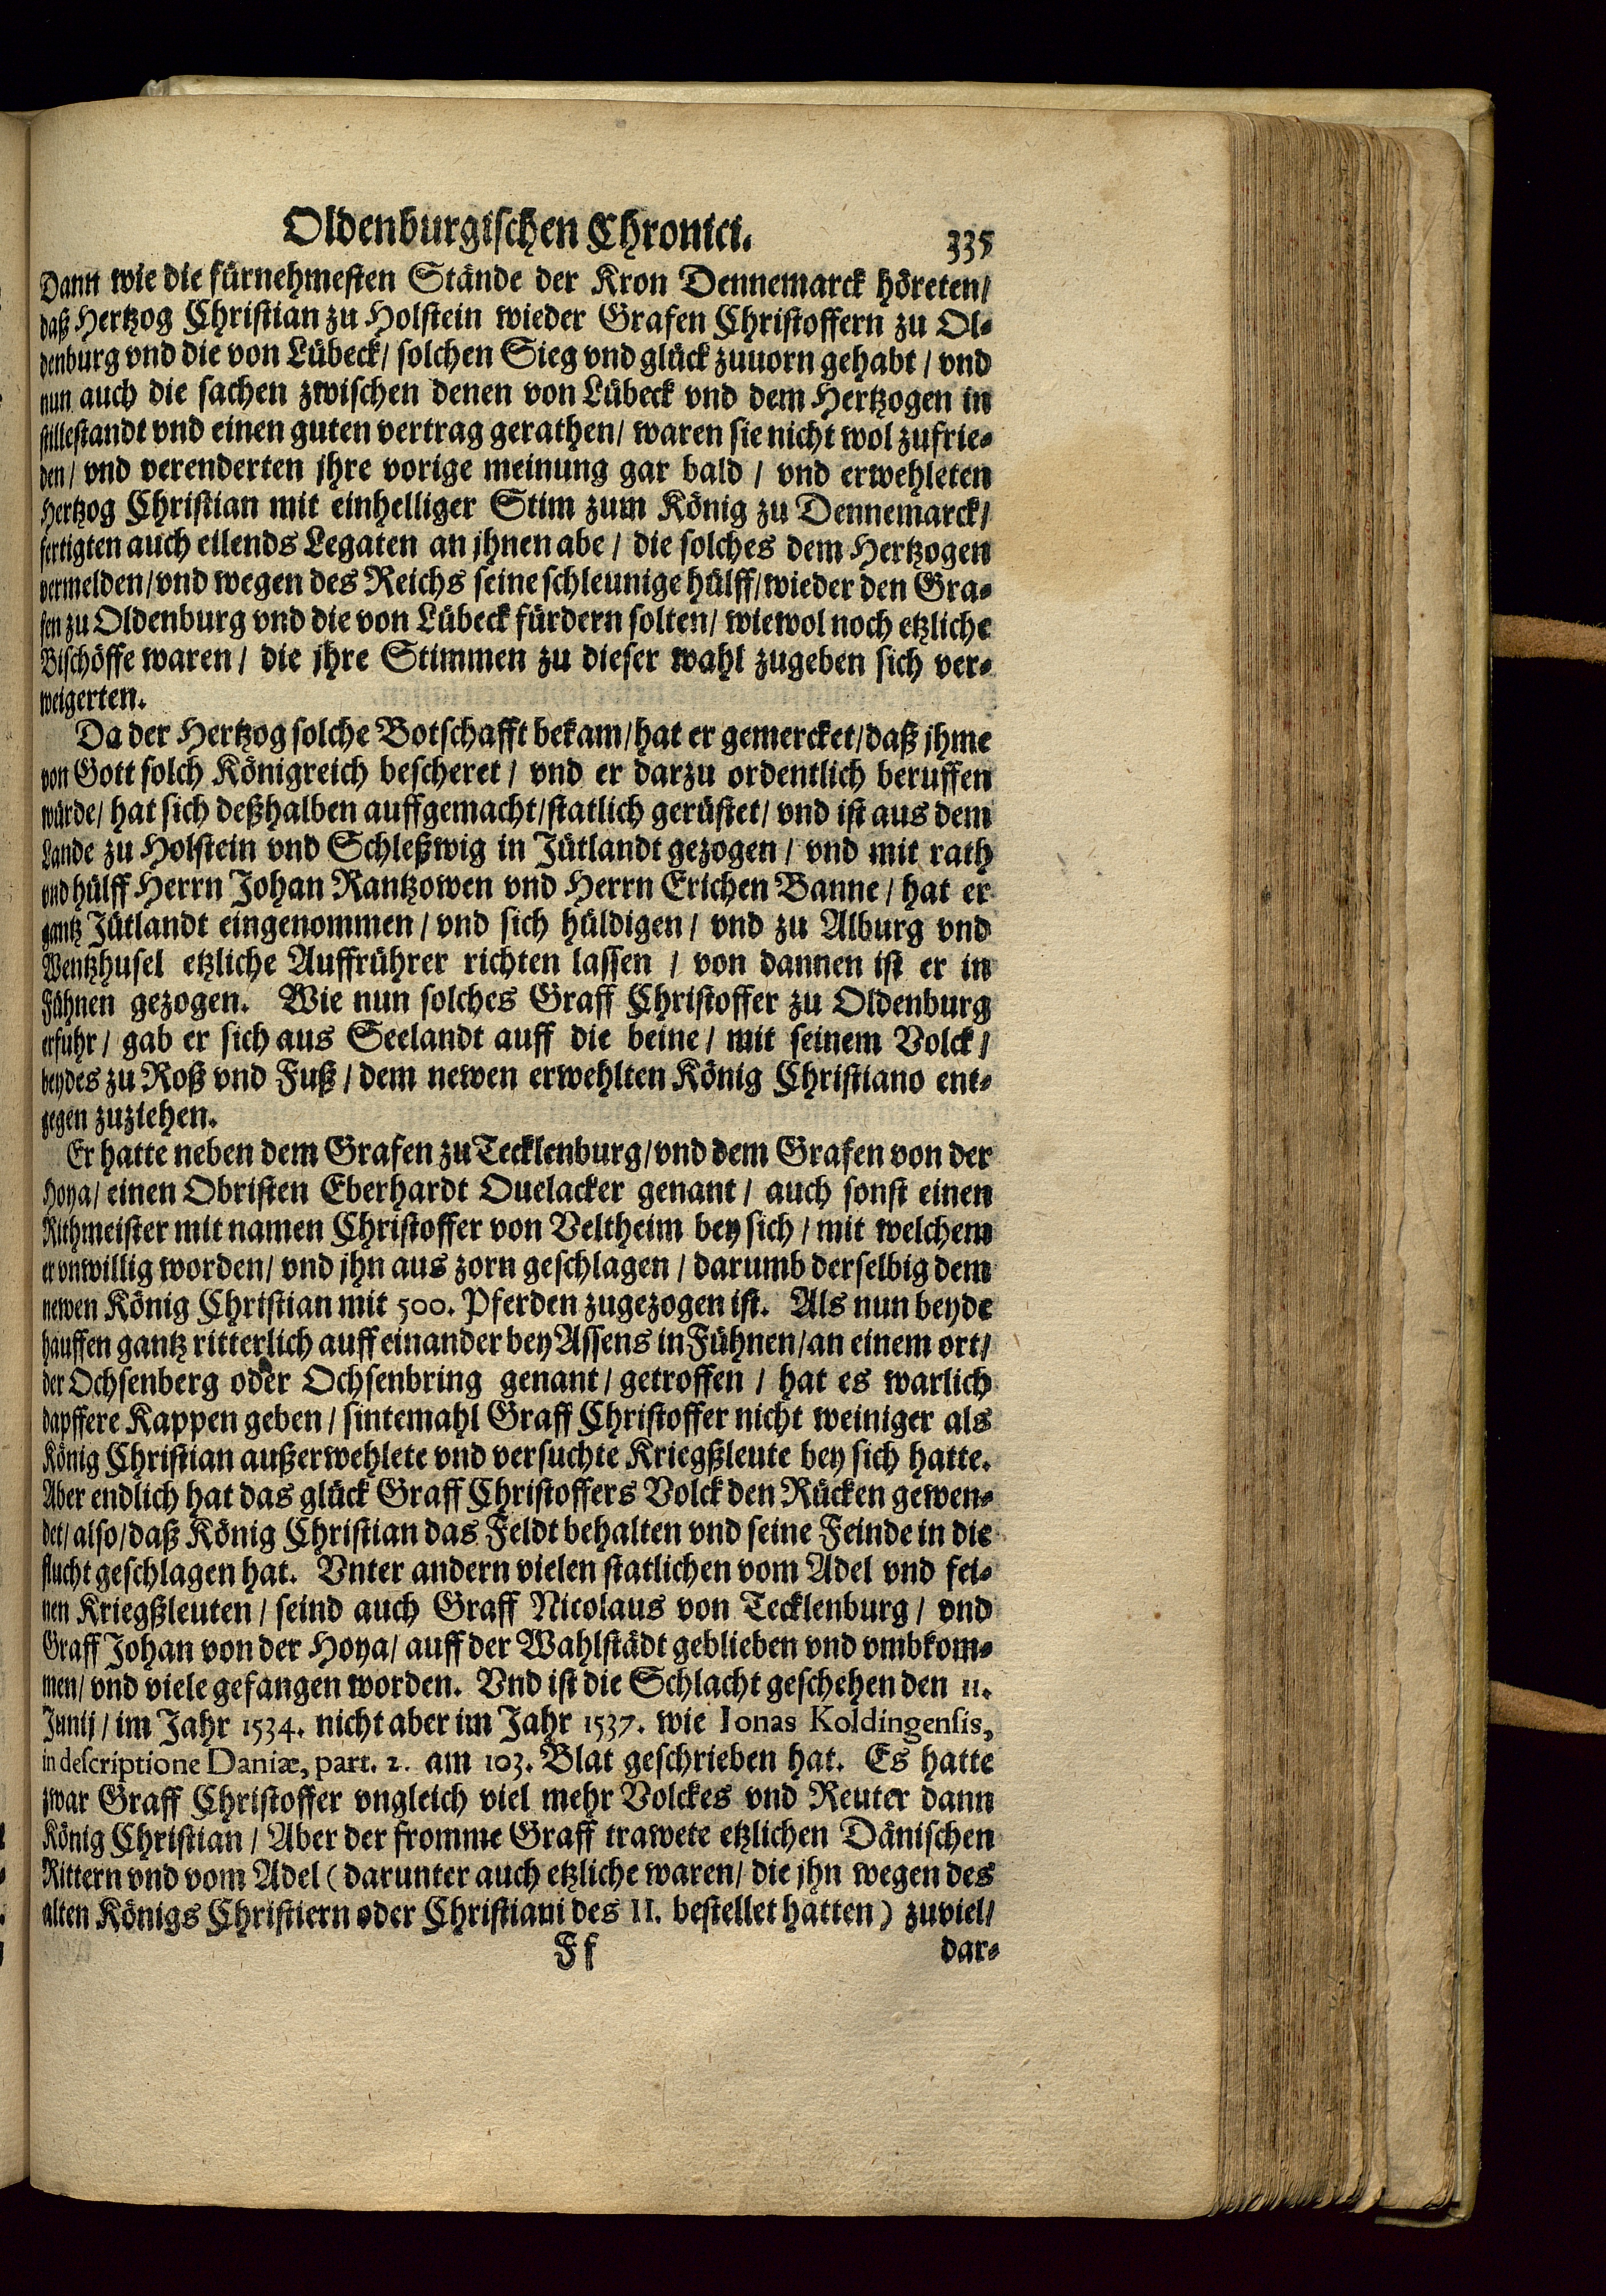 Oldenburgischen Chronici. 335
Dann wie die fürnehmesten Stände der Kron Dennemarck höreten/
daß Hertzog Christian zu Holstein wieder Grafen Christoffern zu Ol-
denburg vnd die von Lübeck/ solchen Sieg vnd glück zuuorn gehabt/ vnd
nun auch die sachen zwischen denen von Lübeck vnd dem Hertzogen in
stillestandt vnd einen guten vertrag gerathen/ waren sie nicht wol zufrie-
den/ vnd verenderten jhre vorige meinung gar bald/ vnd erwehleten
Hertzog Christian mit einhelliger Stim zum König zu Dennemarck/
fertigten auch eilends Legaten an jhnen abe/ die solches dem Hertzogen
vermelden/ vnd wegen des Reichs seine schleunige hülff/ wieder den Gra-
fen zu Oldenburg vnd die von Lübeck fürdern solten/ wiewol noch etzliche
Bischöffe waren/ die jhre Stimmen zu dieser wahl zugeben sich ver-
weigerten.
Da der Hertzog solche Botschafft bekam/ hat er gemercket/ daß jhme
von Gott solch Königreich bescheret/ vnd er darzu ordentlich beruffen
würde/ hat sich deßhalben auffgemacht/ statlich gerüstet/ vnd ist aus dem
Lande zu Holstein vnd Schleßwig in Jütlandt gezogen/ vnd mit rath
vnd hülff Herrn Johan Rantzowen vnd Herrn Erichen Banne/ hat er
gantz Jütlandt eingenommen/ vnd sich huldigen/ vnd zu Alburg vnd
Wentzhusel etzliche Auffrührer richten lassen/ von dannen ist er in
Fühnen gezogen. Wie nun solches Graff Christoffer zu Oldenburg
erfuhr/ gab er sich aus Seelandt auff die beine/ mit seinem Volck/
beydes zu Roß vnd Fuß/ dem newen erwehlten König Christiano ent-
gegen zuziehen.
Er hatte neben dem Grafen zu Tecklenburg/ vnd dem Grafen von der
Hoya/ einen Obristen Eberhardt Ouelacker genant/ auch sonst einen
Rithmeister mit namen Christoffer von Veltheim bey sich/ mit welchem
er vnwillig worden/ vnd jhn aus zorn geschlagen/ darumb derselbig dem
newen König Christian mit 500. Pferden zugezogen ist. Als nun beyde
hauffen gantz ritterlich auff einander bey Assens in Fühnen/ an einem ort/
der Ochsenberg oder Ochsenbring genant/ getroffen/ hat es warlich
dapffere Kappen geben/ sintemahl Graff Christoffer nicht weiniger als
König Christian außerwehlete vnd versuchte Kriegßleute bey sich hatte.
Aber endlich hat das glück Graff Christoffers Volck den Rücken gewen-
det/ also/ daß König Christian das Feldt behalten vnd seine Feinde in die
flucht geschlagen hat. Vnter andern vielen statlichen vom Adel vnd fei-
nen Kriegßleuten/ seind auch Graff Nicolaus von Tecklenburg/ vnd
Graff Johan von der Hoya/ auff der Wahlstädt geblieben vnd vmbkom-
men/ vnd viele gefangen worden. Vnd ist die Schlacht geschehen den 11.
Junij/ im Jahr 1534. nicht aber im Jahr 1537. wie Ionas Koldingensis,
in descriptione Daniæ, part. 2. am 103. Blat geschrieben hat. Es hatte
zwar Graff Christoffer vngleich viel mehr Volckes vnd Reuter dann
König Christian/ Aber der fromme Graff trawete etzlichen Dänischen
Rittern vnd vom Adel (darunter auch etzliche waren/ die jhn wegen des
alten Königs Christiern oder Christiani des II. bestellet hatten) zuviel/
Ff dar-